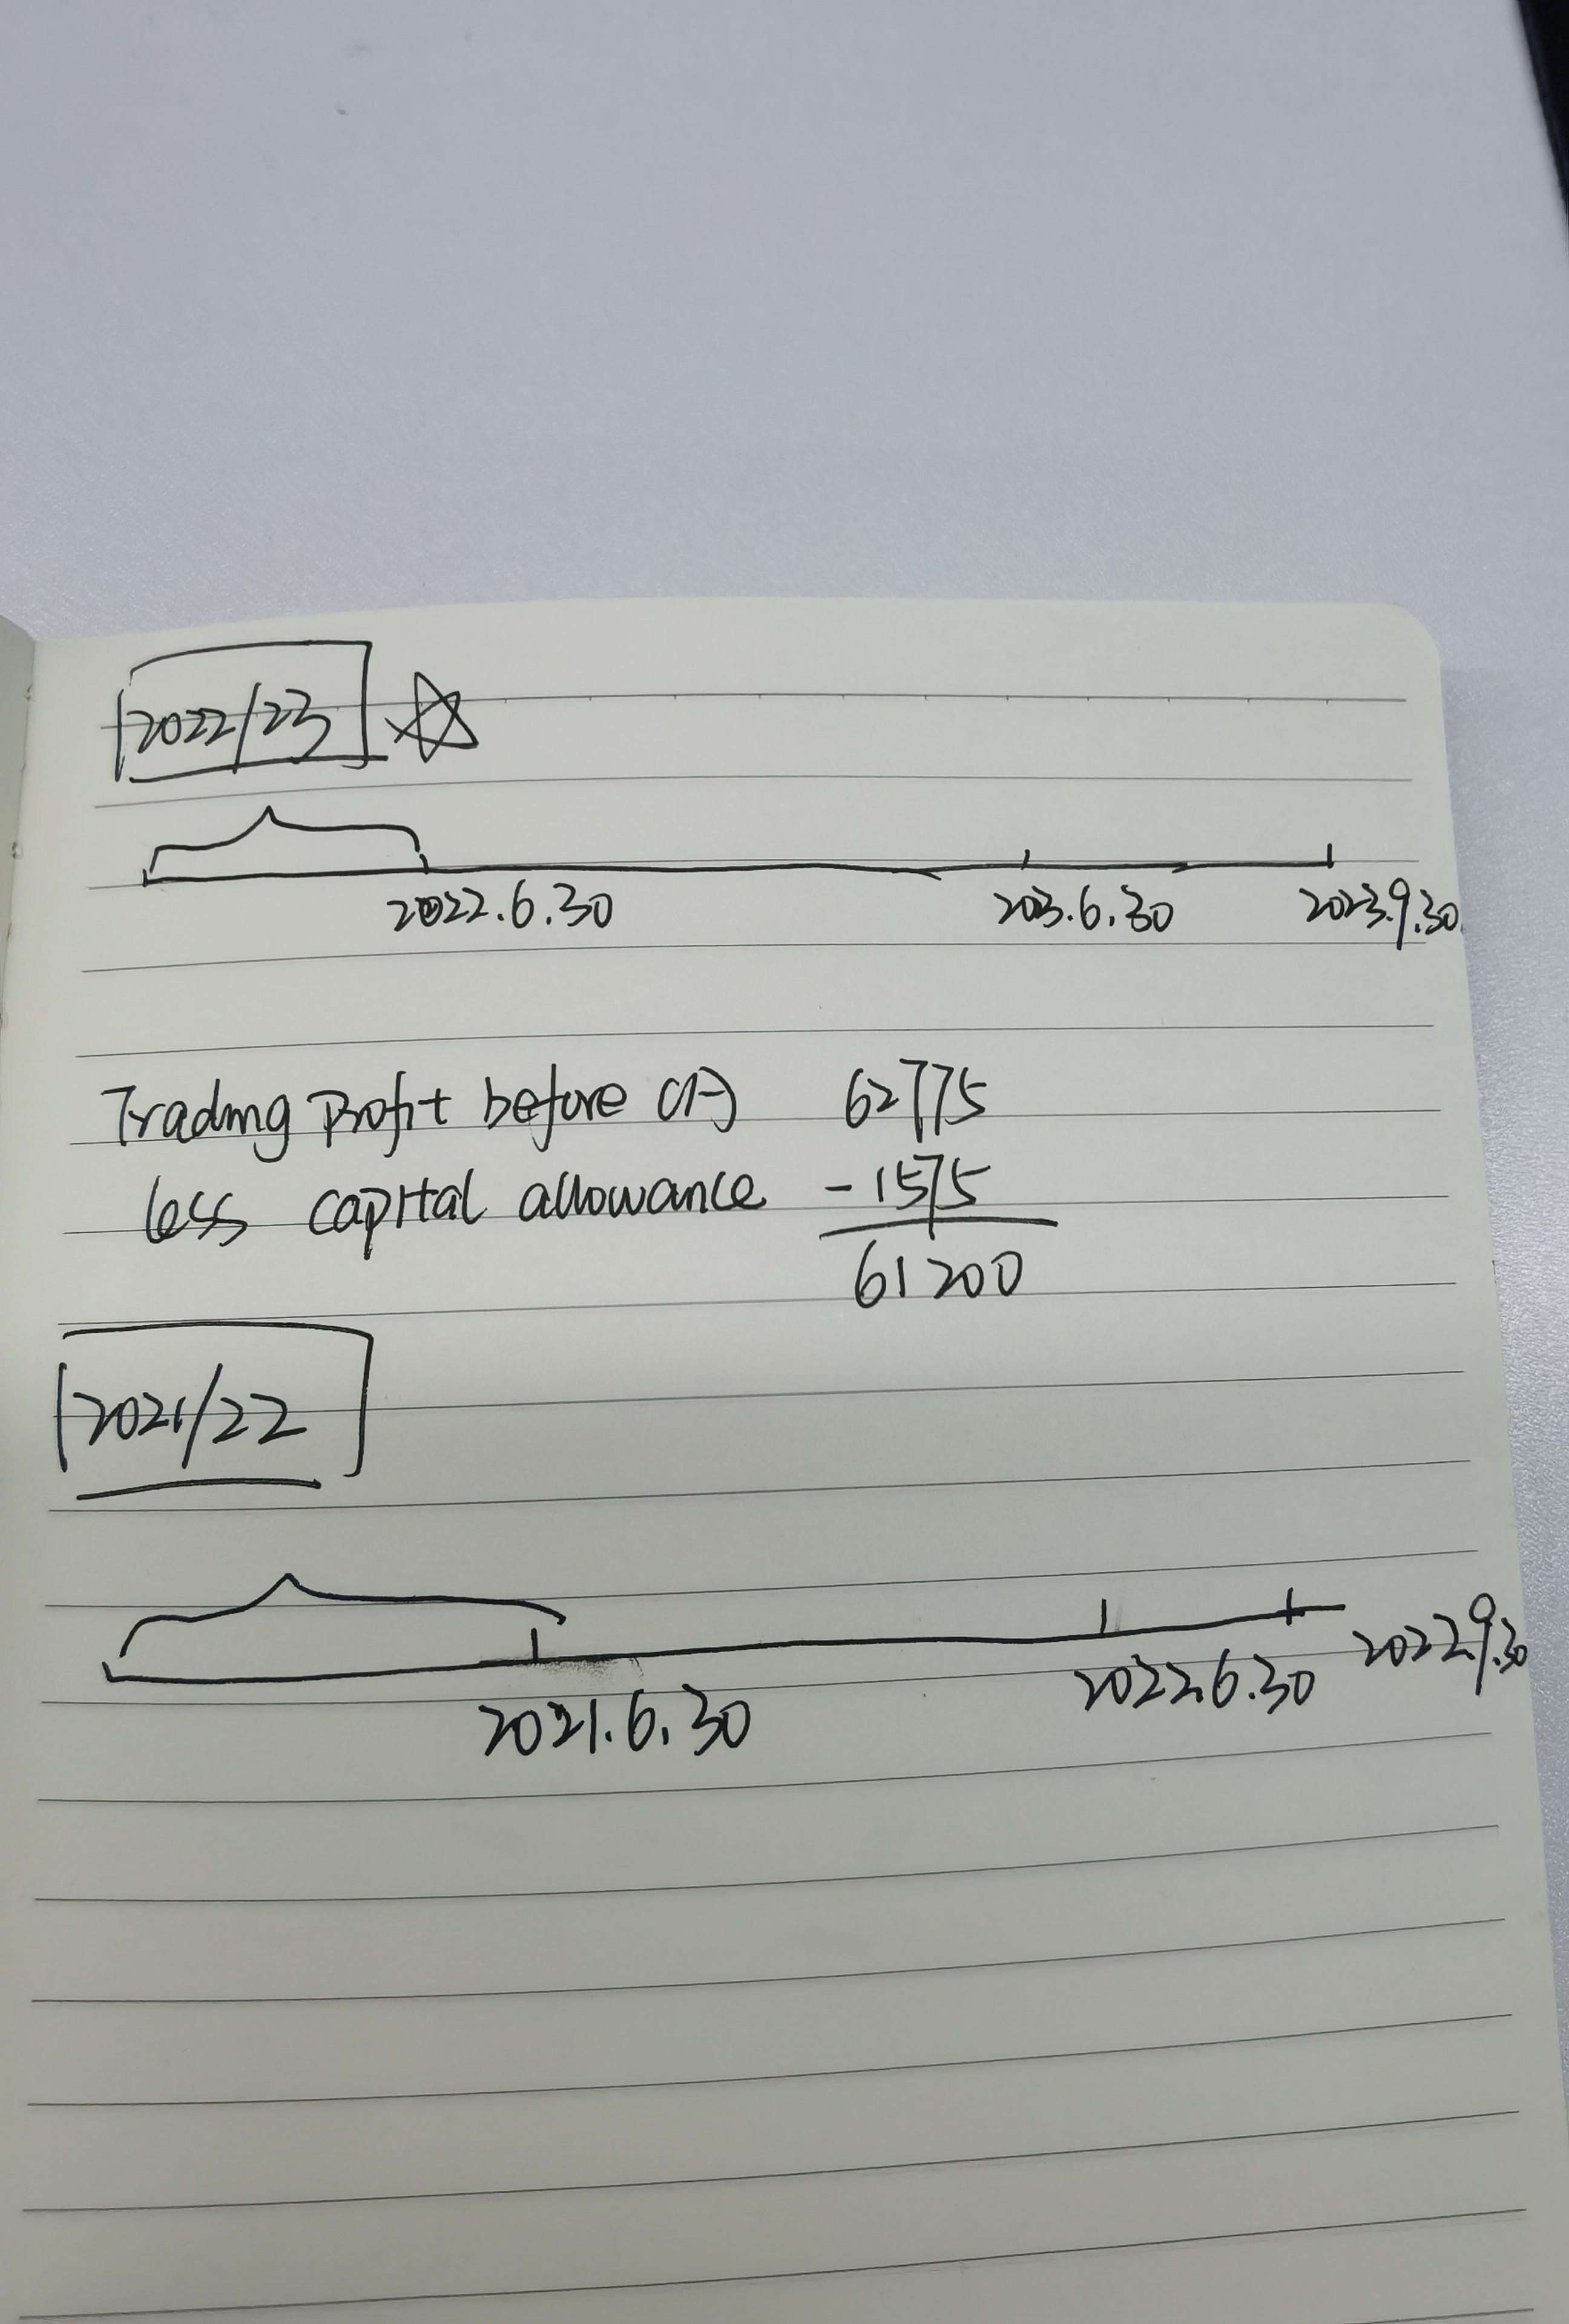 2022/23
2022.6.30 2023.6.30 2023.9.30
Trading Profit before CA 62775
less capital allowance -1575
61200
2021/22
2021.6.30 2022.6.30 2022.9.30